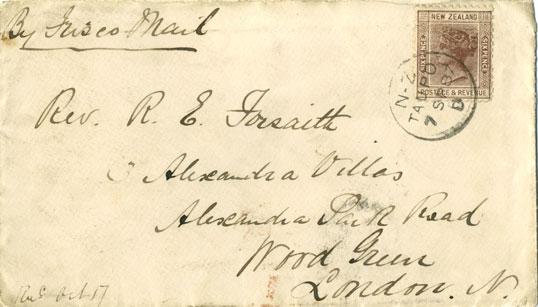 By Frisco Mail
NEW ZEALAND
SIXPENCE
SIXPENCE
POSTAGE & REVENUE
N-Z
TAUPO
7 SP 87
Rev. R. E. Forsaith
3 Alexandra Villas
Alexandra Park Road
Wood Green
London. N.
Oct 17